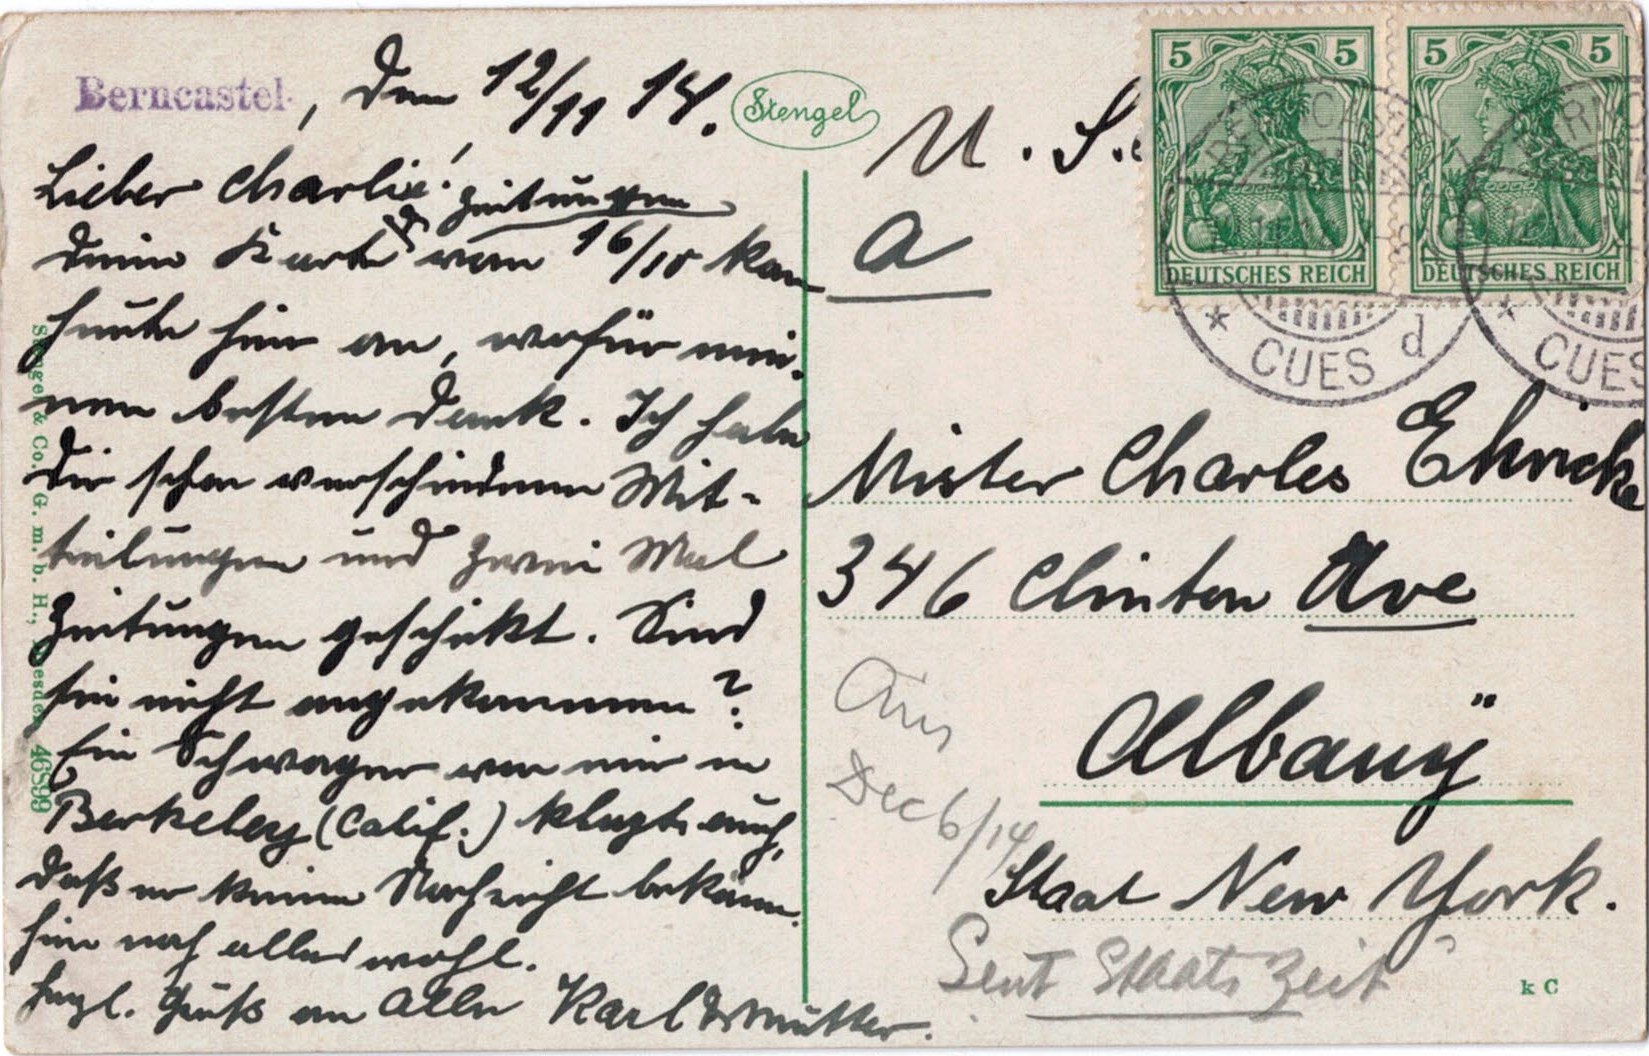 Berncastel, den 12/11 14.
Stengel
Lieber Charlie!
Zeitungen
Deine Karte & vom 16/10 kam
heute hier an, wofür mei-
nen besten Dank. Ich habe
Dir schon verschiedene Mit-
teilungen und zwei Mal
Zeitungen geschikt. Sind
sie nicht angekommen?
Ein Schwager von mir in
Berkeley (Calif.) klagte auch,
daß er keine Nachricht bekäme.
Hier noch alles wohl.
Herzl. Gruß an Alle Karl & Mutter.
Stengel & Co., G. m. b. H., Dresden 46899
U. S.
A
5 5
DEUTSCHES REICH
5 5
DEUTSCHES REICH
* CUES d
* CUES
Mister Charles Ehricke
346 Clinton Ave
Albany
Staat New York.
Ans
Dec 6/14
Sent Staats Zeit
k C